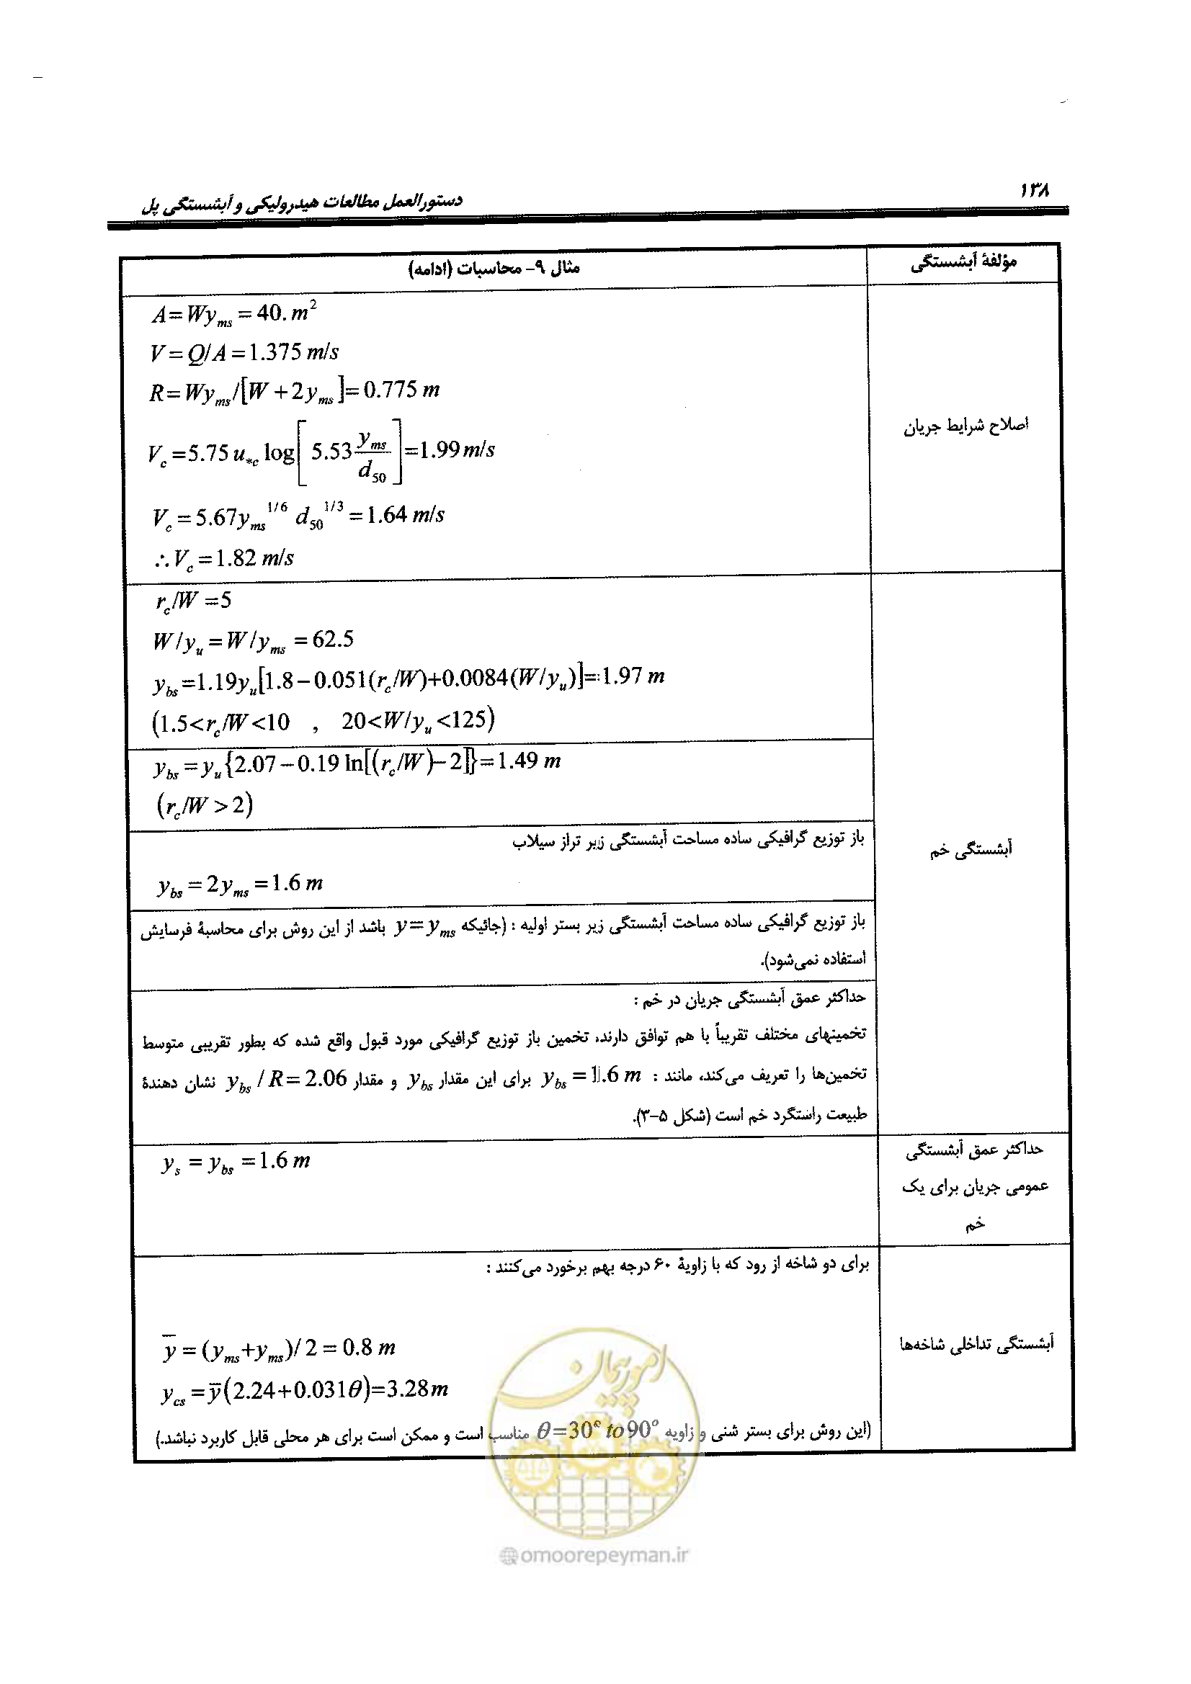 ۱۳۸
دستورالعمل مطالعات هیدرولیکی و آبشستگی پل
مؤلفهٔ آبشستگی
مثال ۹- محاسبات (ادامه)
اصلاح شرایط جریان
A = Wy_ms = 40. m²
V = Q/A = 1.375 m/s
R = Wy_ms/[W + 2y_ms] = 0.775 m
V_c = 5.75 u_*c log[5.53 y_ms/d_50] = 1.99 m/s
V_c = 5.67y_ms^1/6 d_50^1/3 = 1.64 m/s
∴ V_c = 1.82 m/s
آبشستگی خم
r_c/W = 5
W/y_u = W/y_ms = 62.5
y_bs = 1.19y_u[1.8 − 0.051(r_c/W) + 0.0084(W/y_u)] = 1.97 m
(1.5<r_c/W<10 , 20<W/y_u<125)
y_bs = y_u{2.07 − 0.19 ln[(r_c/W) − 2]} = 1.49 m
(r_c/W > 2)
باز توزیع گرافیکی ساده مساحت آبشستگی زیر تراز سیلاب
y_bs = 2y_ms = 1.6 m
باز توزیع گرافیکی ساده مساحت آبشستگی زیر بستر اولیه : (جائیکه y = y_ms باشد از این روش برای محاسبهٔ فرسایش
استفاده نمی‌شود).
حداکثر عمق آبشستگی جریان در خم :
تخمینهای مختلف تقریباً با هم توافق دارند، تخمین باز توزیع گرافیکی مورد قبول واقع شده که بطور تقریبی متوسط
تخمین‌ها را تعریف می‌کند، مانند : y_bs = 1.6 m برای این مقدار y_bs و مقدار y_bs / R = 2.06 نشان دهندهٔ
طبیعت راستگرد خم است (شکل ۵-۳).
حداکثر عمق آبشستگی
عمومی جریان برای یک
خم
y_s = y_bs = 1.6 m
آبشستگی تداخلی شاخه‌ها
برای دو شاخه از رود که با زاویهٔ ۶۰ درجه بهم برخورد می‌کنند :
y̅ = (y_ms+y_ms)/2 = 0.8 m
y_cs = y̅(2.24+0.031θ)=3.28 m
(این روش برای بستر شنی و زاویه θ=30° to 90° مناسب است و ممکن است برای هر محلی قابل کاربرد نباشد.)
امور پیمان
@omoorepeyman.ir